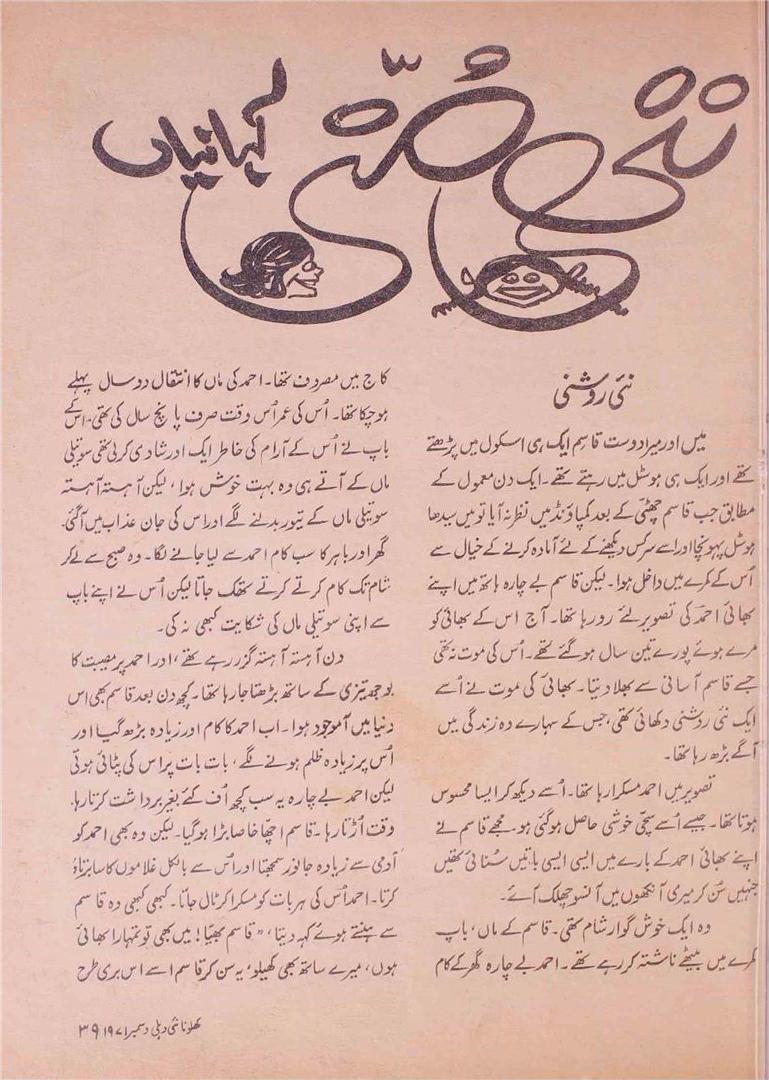 ننھی مُنّی کہانیاں
نئی روشنی
میں اور میرا دوست قاسم ایک ہی اسکول میں پڑھتے
تھے اور ایک ہی ہوسٹل میں رہتے تھے۔ ایک دن معمول کے
مطابق جب قاسم چھٹی کے بعد کمپاؤنڈ میں نظر نہ آیا تو میں سیدھا
ہوسٹل پہونچا اور اسے سرکس دیکھنے کے لئے آمادہ کرنے کے خیال سے
اُس کے کمرے میں داخل ہوا۔ لیکن قاسم بے چارہ ہاتھ میں اپنے
بھائی احمد کی تصویر لئے رو رہا تھا۔ آج اس کے بھائی کو
مرے ہوئے پورے تین سال ہو گئے تھے۔ اُس کی موت نہ تھی
جسے قاسم آسانی سے بھلا دیتا۔ بھائی کی موت نے اُسے
ایک نئی روشنی دکھائی تھی، جس کے سہارے وہ زندگی میں
آگے بڑھ رہا تھا۔
تصویر میں احمد مسکرا رہا تھا۔ اُسے دیکھ کر ایسا محسوس
ہوتا تھا۔ جیسے اُسے سچی خوشی حاصل ہو گئی ہو۔ مجھے قاسم نے
اپنے بھائی احمد کے بارے میں ایسی ایسی باتیں سُنائی تھیں
جنہیں سُن کر میری آنکھوں میں آنسو چھلک آئے۔
وہ ایک خوش گوار شام تھی۔ قاسم کے ماں، باپ
کمرے میں بیٹھے ناشتہ کر رہے تھے۔ احمد بے چارہ گھر کے کام
کاج میں مصروف تھا۔ احمد کی ماں کا انتقال دو سال پہلے
ہو چکا تھا۔ اُس کی عمر اُس وقت صرف پانچ سال کی تھی۔ اس کے
باپ نے اُس کے آرام کی خاطر ایک اور شادی کر لی تھی سوتیلی
ماں کے آتے ہی وہ بہت خوش ہوا، لیکن آہستہ آہستہ
سوتیلی ماں کے تیور بدلنے لگے اور اس کی جان عذاب میں آ گئی۔
گھر اور باہر کا سب کام احمد سے لیا جانے لگا۔ وہ صبح سے لے کر
شام تک کام کرتے کرتے تھک جاتا لیکن اُس نے اپنے باپ
سے اپنی سوتیلی ماں کی شکایت کبھی نہ کی۔
دن آہستہ آہستہ گزر رہے تھے، اور احمد پر مصیبت کا
بوجھ تیزی کے ساتھ بڑھتا جا رہا تھا۔ کچھ دن بعد قاسم بھی اس
دنیا میں آ موجود ہوا۔ اب احمد کا کام اور زیادہ بڑھ گیا اور
اُس پر زیادہ ظلم ہونے لگے، بات بات پر اس کی پٹائی ہوتی
لیکن احمد بے چارہ یہ سب کچھ اُف کئے بغیر برداشت کرتا رہا۔
وقت اُڑتا رہا۔ قاسم اچھا خاصا بڑا ہو گیا۔ لیکن وہ بھی احمد کو
آدمی سے زیادہ جانور سمجھتا اور اُس سے بالکل غلاموں کا سا برتاؤ
کرتا۔ احمد اُس کی ہر بات کو مسکرا کر ٹال جاتا۔ کبھی کبھی وہ قاسم
سے ہنستے ہوئے کہہ دیتا، "قاسم بھیّا! میں بھی تو تمہارا بھائی
ہوں، میرے ساتھ بھی کھیلو" یہ سن کر قاسم اسے اس بری طرح
کھلونا نئی دہلی دسمبر ۱۹۷۱ ۳۹